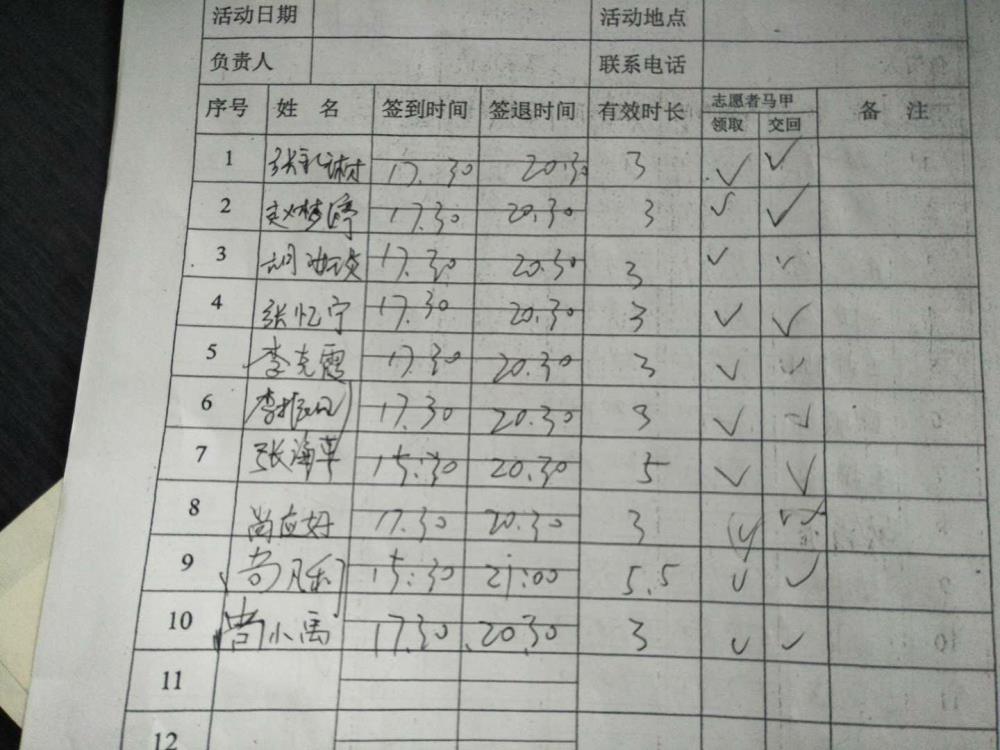 活动日期 活动地点
负责人 联系电话
序号 姓 名 签到时间 签退时间 有效时长 志愿者马甲 备 注
领取 交回
1 17.30 20.30 3 ✓ ✓
2 赵梦婷 17.30 20.30 3 ✓ ✓
3 17.30 20.30 3 ✓ ✓
4 张忆宁 17.30 20.30 3 ✓ ✓
5 李克霞 17.30 20.30 3 ✓ ✓
6 17.30 20.30 3 ✓ ✓
7 张海草 15:30 20.30 5 ✓ ✓
8 尚应好 17.30 20.30 3 ✓ ✓
9 尚凡利 15:30 21:00 5.5 ✓ ✓
10 尚小禹 17.30 20.30 3 ✓ ✓
11
12